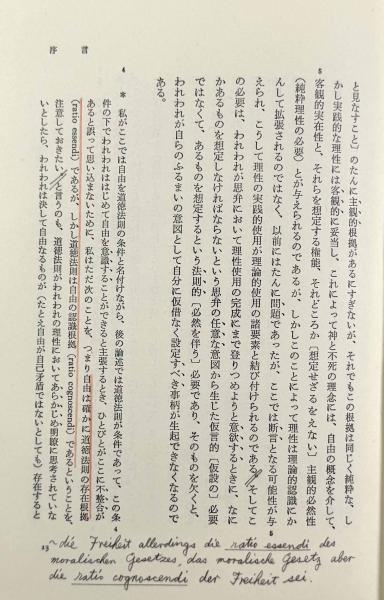 序　言
と見なすこと）のたんに主観的根拠があるにすぎないが、それでもこの根拠は同じく純粋な、し
かし実践的な理性には客観的に妥当し、これによって神と不死の理念には、自由の概念を介して、
客観的実在性と、それらを想定する権能、それどころか〔想定せざるをえない〕主観的必然性
（純粋理性の必要）とが与えられるのであるが、しかしこのことによって理性は理論的認識にか
んして拡張されるのではなく、以前にはたんに問題であったが、ここでは断言となる可能性が与
えられ、こうして理性の実践的使用が理論的使用の諸要素と結び付けられるのである。そしてこ
の必要は、われわれが思弁において理性使用の完成にまで登りつめようと意欲するときに、なに
かあるものを想定しなければならないという思弁の任意な意図から生じた仮言的〔仮設の〕必要
ではなくて、あるものを想定するという法則的〔必然を伴う〕必要であり、そのものを欠くと、
われわれが自らのふるまいの意図として自分に仮借なく設定すべき事柄が生起できなくなるので
ある。
5
4
＊　私がここでは自由を道徳法則の条件と名付けながら、後の論述では道徳法則が条件であって、この条
件の下でわれわれははじめて自由を意識することができると主張するとき、ひとびとがここに不整合が
あると誤って思い込まないために、私はただ次のことを、つまり自由は確かに道徳法則の存在根拠
（ratio essendi）であるが、しかし道徳法則は自由の認識根拠（ratio cognoscendi）であるということを、
注意しておきたい。と言うのも、道徳法則がわれわれの理性においてあらかじめ明瞭に思考されていな
いとしたら、われわれは決して自由なるものが（たとえ自由が自己矛盾ではないとしても）存在すると
4
5
13 ~ die Freiheit allerdings die ratio essendi des
moralischen Gesetzes, das moralische Gesetz aber
die ratio cognoscendi der Freiheit sei.